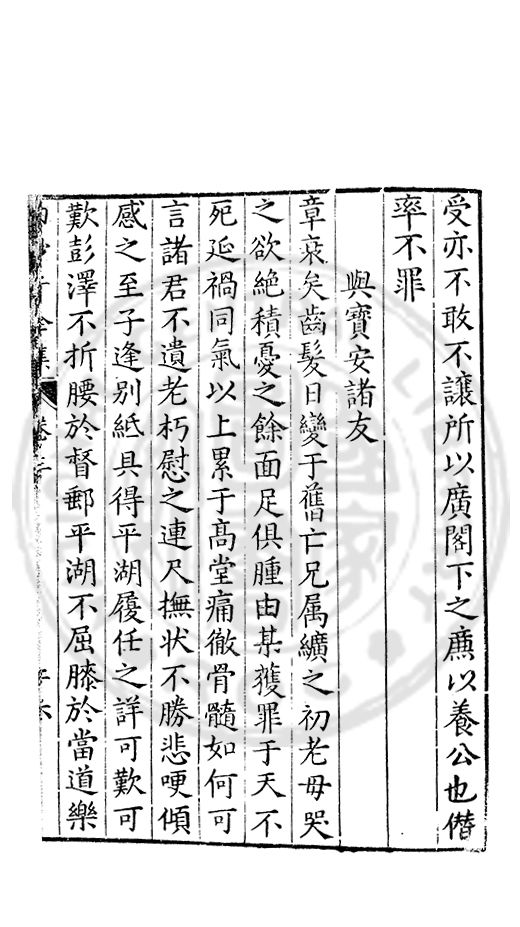 受亦不敢不讓所以廣閣下之廌以養公也僣
率不罪
與寶安諸友
章衰矣齒髮日變于舊亡兄属纊之初老毋哭
之欲絶積憂之餘面足俱腫由某獲罪于天不
死延禍同氣以上累于髙堂痛徹骨髓如何可
言諸君不遺老朽慰之連尺撫状不勝悲哽傾
感之至子逢别紙具得平湖履任之詳可歎可
歎彭澤不折腰於督郵平湖不屈膝於當道樂
白沙子全集 卷三